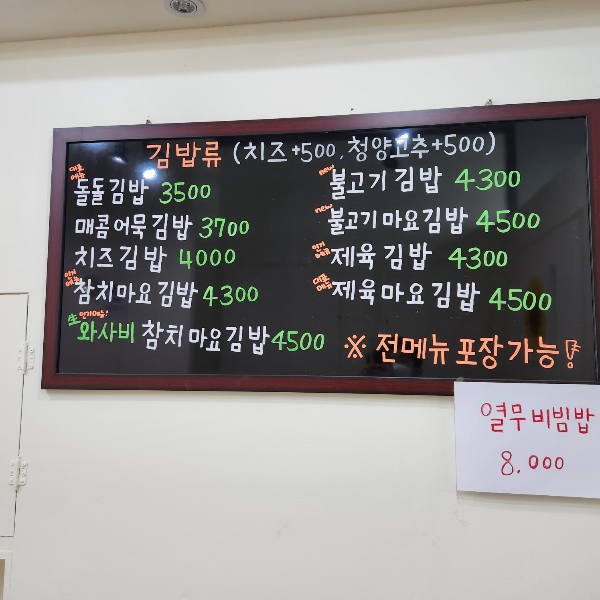 김밥류 (치즈+500, 청양고추+500)
대표
메뉴
돌돌김밥 3500
매콤어묵김밥 3700
치즈김밥 4000
인기
메뉴
참치마요김밥 4300
生 인기메뉴!
와사비 참치마요김밥 4500
new
불고기김밥 4300
new
불고기마요김밥 4500
인기
메뉴
제육김밥 4300
대표
메뉴
제육마요김밥 4500
※ 전메뉴 포장가능!
열무비빔밥
8,000